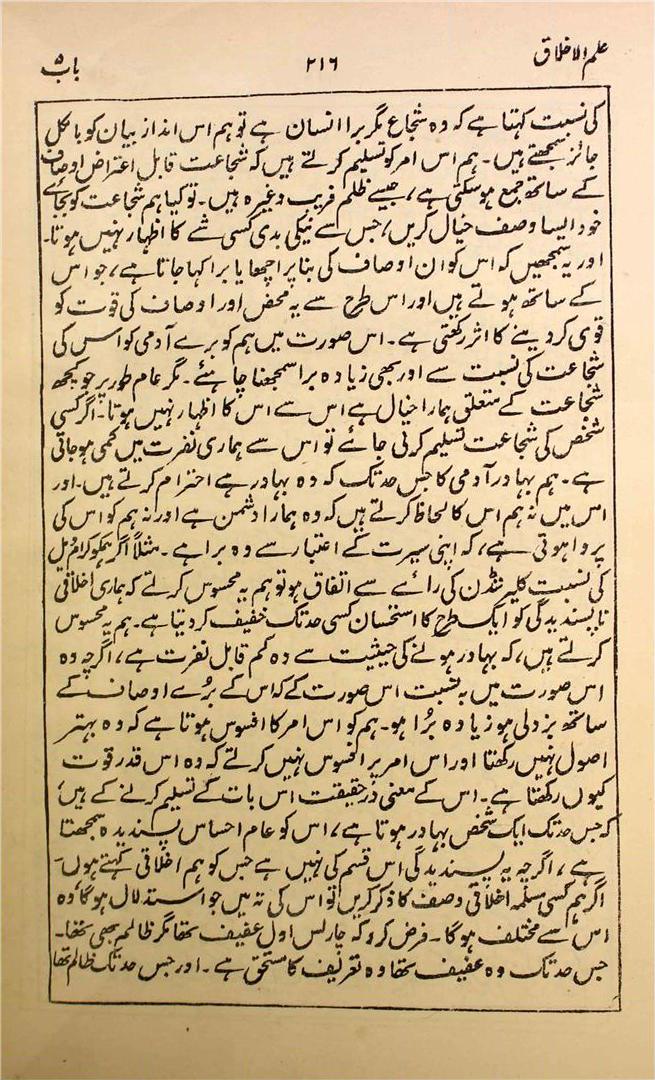 علم الاخلاق
۲۱۶
باب ۵
کی نسبت کہتا ہے کہ وہ شجاع مگر برا انسان ہے تو ہم اس انداز بیان کو بالکل
جائز سمجھتے ہیں۔ ہم اس امر کو تسلیم کرتے ہیں کہ شجاعت قابل اعتراض اوصاف
کے ساتھ جمع ہو سکتی ہے، جیسے ظلم فریب وغیرہ ہیں۔ تو کیا ہم شجاعت کو بجائے
خود ایسا وصف خیال کریں، جس سے نیکی بدی کسی شے کا اظہار نہیں ہوتا۔
اور یہ سمجھیں کہ اس کو ان اوصاف کی بنا پر اچھا یا برا کہا جاتا ہے، جو اس
کے ساتھ ہوتے ہیں اور اس طرح سے یہ محض اور اوصاف کی قوت کو
قوی کر دینے کا اثر رکھتی ہے۔ اس صورت میں ہم کو برے آدمی کو اس کی
شجاعت کی نسبت سے اور بھی زیادہ برا سمجھنا چاہئے۔ مگر عام طور پر جو کچھ
شجاعت کے متعلق ہمارا خیال ہے اس سے اس کا اظہار نہیں ہوتا۔ اگر کسی
شخص کی شجاعت تسلیم کر لی جائے تو اس سے ہماری نفرت میں کمی ہو جاتی
ہے۔ ہم بہادر آدمی کا جس حد تک کہ وہ بہادر ہے احترام کرتے ہیں۔ اور
اس میں نہ ہم اس کا لحاظ کرتے ہیں کہ وہ ہمارا دشمن ہے اور نہ ہم کو اس کی
پروا ہوتی ہے، کہ اپنی سیرت کے اعتبار سے وہ برا ہے۔ مثلاً اگر ہمکو کرامویل
کی نسبت کلیرنڈن کی رائے سے اتفاق ہو تو ہم یہ محسوس کرتے کہ ہماری اخلاقی
ناپسندیدگی کو ایک طرح کا استحسان کسی حد تک خفیف کر دیتا ہے۔ ہم یہ محسوس
کرتے ہیں، کہ بہادر ہونے کی حیثیت سے وہ کم قابل نفرت ہے، اگرچہ وہ
اس صورت میں بہ نسبت اس صورت کے کہ اس کے بُرے اوصاف کے
ساتھ بزدلی ہو زیادہ بُرا ہو۔ ہم کو اس امر کا افسوس ہوتا ہے کہ وہ بہتر
اصول نہیں رکھتا اور اس امر پر افسوس نہیں کرتے کہ وہ اس قدر قوت
کیوں رکھتا ہے۔ اس کے معنی درحقیقت اس بات کے تسلیم کرنے کے ہیں،
کہ جس حد تک ایک شخص بہادر ہوتا ہے، اس کو عام احساس پسندیدہ سمجھتا
ہے، اگرچہ یہ پسندیدگی اس قسم کی نہیں ہے جس کو ہم اخلاقی کہتے ہوں۔
اگر ہم کسی مسلمہ اخلاقی وصف کا ذکر کریں تو اس کی تہ میں جو استدلال ہوگا، وہ
اس سے مختلف ہوگا۔ فرض کرو کہ چارلس اول عفیف تھا مگر ظالم بھی تھا۔
جس حد تک وہ عفیف تھا وہ تعریف کا مستحق ہے۔ اور جس حد تک ظالم تھا